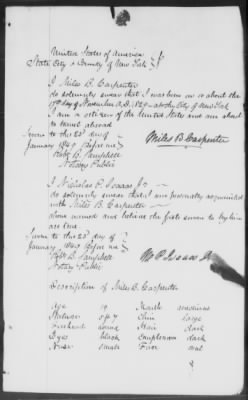 United States of America
State City & County of New York } ss
I Miles B. Carpenter
do solemnly swear that I was born on or about the
day of November A.D. 1829 at the City of New York
I am a citizen of the United States and am about
to travel abroad
Sworn to this 23d day of
January 1849 Before me
Campbell
Notary Public
Miles B. Carpenter
I Nicholas P. Isaacs Jr
do solemnly swear that I am personally acquainted
with Miles B. Carpenter
above named and believe the facts sworn to by him
are true
Sworn to this 23d day of
January 1849 Before me
Campbell
Notary Public
N. P. Isaacs Jr
Description of Miles B. Carpenter
Age 19 Mouth medium
Stature Chin large
Forehead Hair dark
Eyes black Complexion dark
Nose small Face